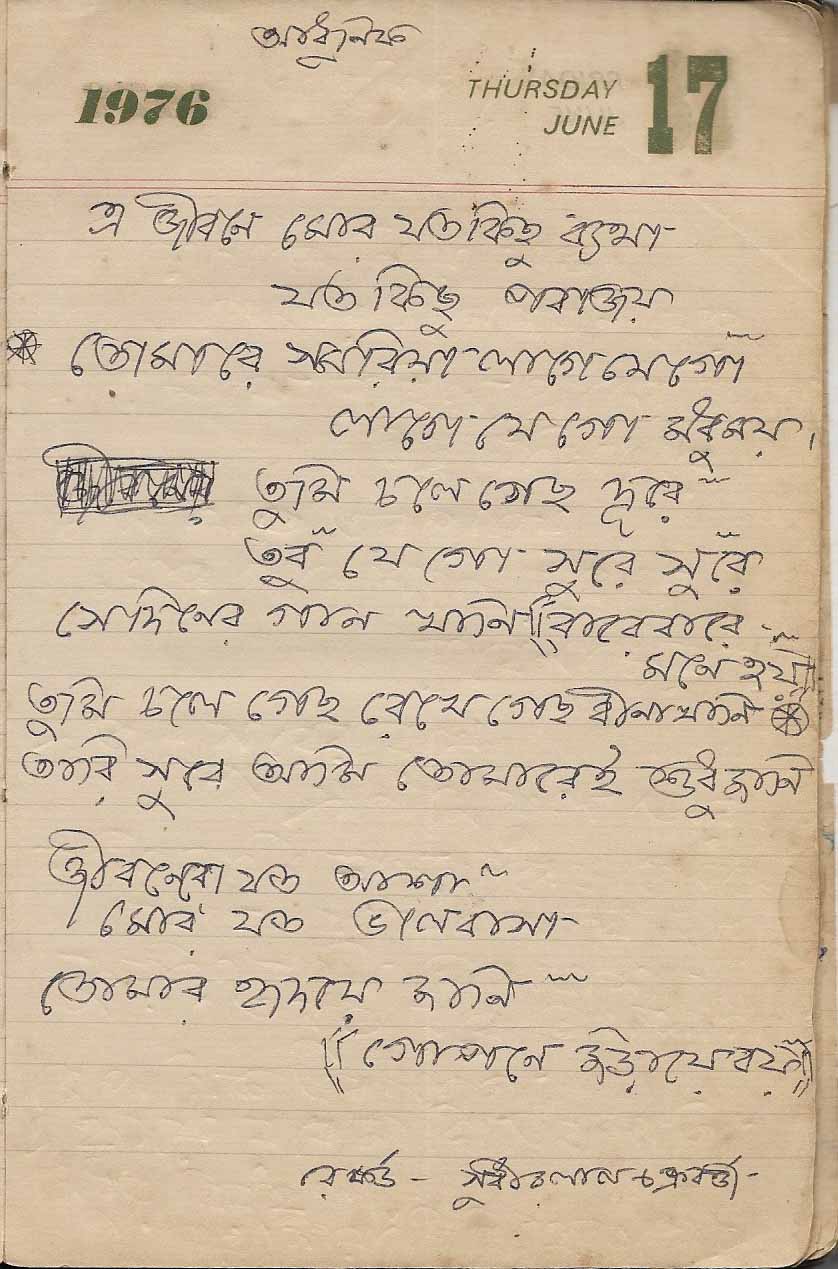 আধুনিক
1976
THURSDAY 17
JUNE
এ জীবনে মোর যত কিছু ব্যথা
যত কিছু পরাজয়
তোমারে স্মরিয়া লাগে যে গো
লাগে যে গো মধুময়।
তুমি চলে গেছ দূরে
তবু যে গো সুরে সুরে
সেদিনের গান খানি ((বারে বারে
মনে হয়))
তুমি চলে গেছ রেখে গেছ বীনাখানি
তারি সুরে আমি তোমারেই শুধু জানি
জীবনেরো যত আশা
মোর যত ভালবাসা
তোমার হৃদয়ে জানি
((গোপনে জড়ায়ে রয়))
রেকর্ড - সুধীরলাল চক্রবর্ত্তী